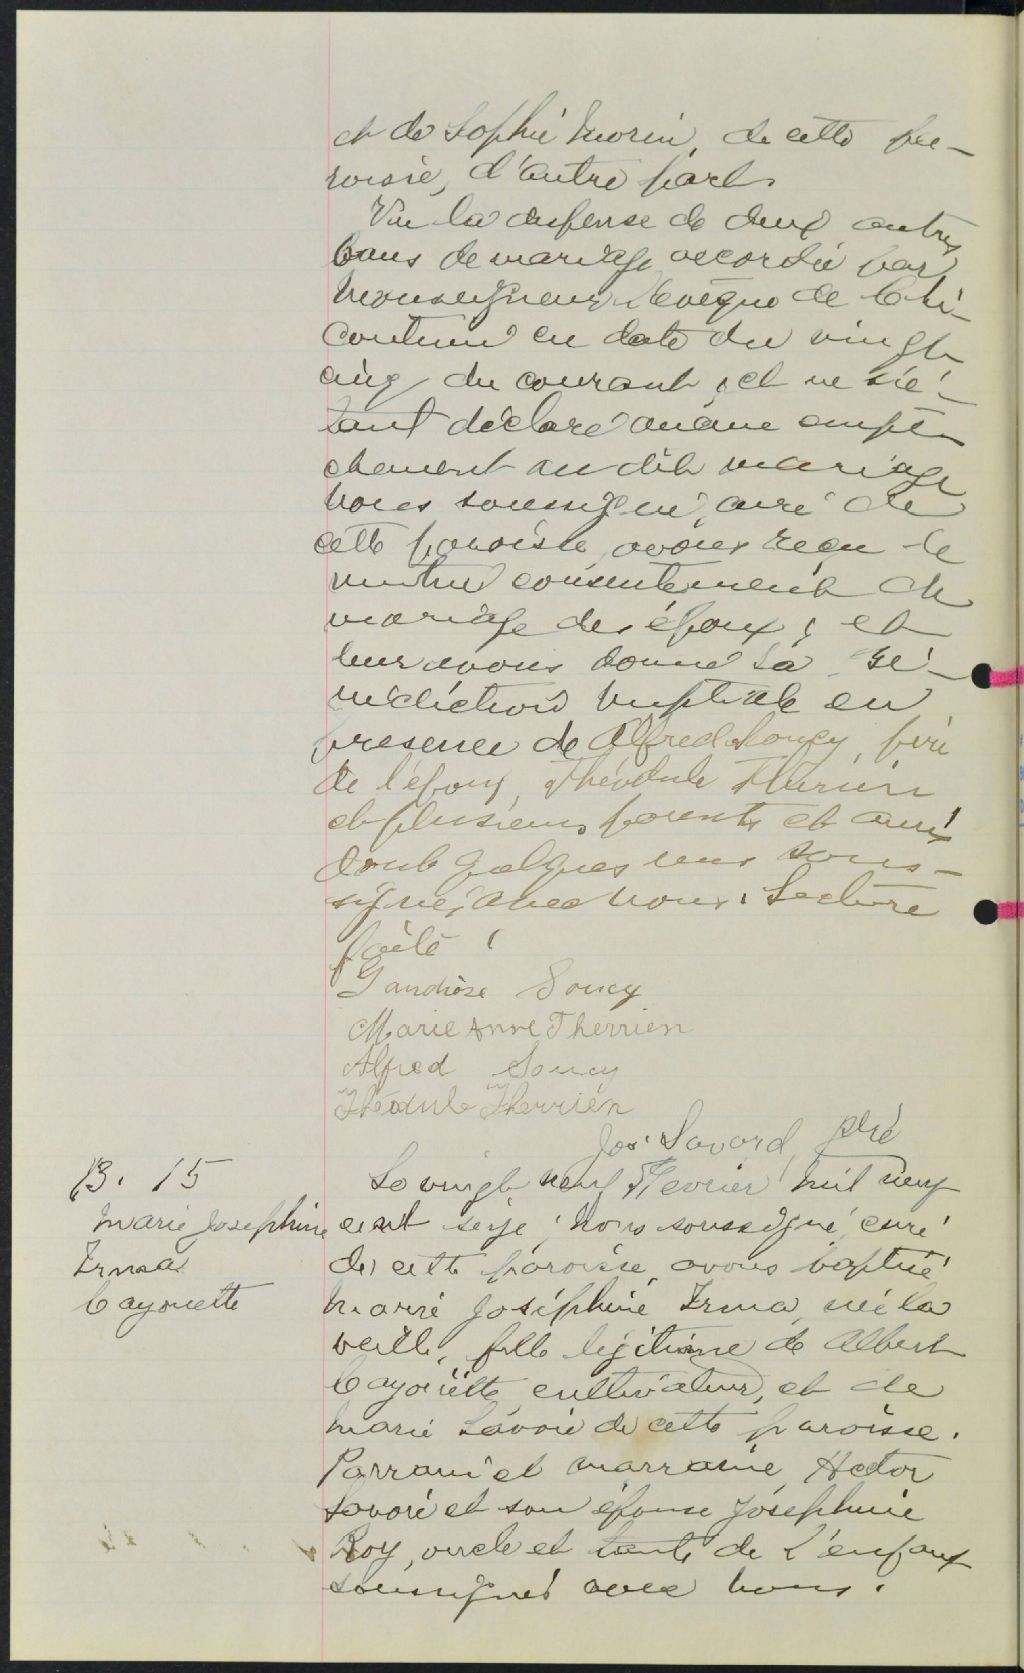 et de Sophie Morin, de cette pa-
roisse, d'autre part.
Vu la dispense de deux autres
bans de mariage accordée par
Monseigneur l'évêque de Chi-
coutimi en date du vingt
cinq du courant, et ne s'é-
tant déclaré aucun empê-
chement au dit mariage
nous soussigné, curé de
cette paroisse, avons reçu le
mutuel consentement de
mariage des époux, et
leur avons donné la bé-
nédiction nuptiale en
presence de Alfred Soucy, père
de l'époux, Théodule Therrien
et plusieurs parents et amis
dont quelques uns sous-
signés avec nous. Lecture
faite.
Gaudiose Soucy
Marie Anne Therrien
Alfred Soucy
Théodule Therrien
Jos. Savard, ptre
B. 15
Marie Josephine
Irma
Cayouette
Le vingt neuf Fevrier mil neuf
cent seize, nous soussigné, curé
de cette paroisse, avons baptisé
Marie Joséphine Irma, née la
veille, fille légitime de Albert
Cayouette, cultivateur, et de
Marie Savoie de cette paroisse.
Parrain et marraine, Hector
Savoie et son épouse Joséphine
Roy, oncle et tante de l'enfant
soussignés avec nous.